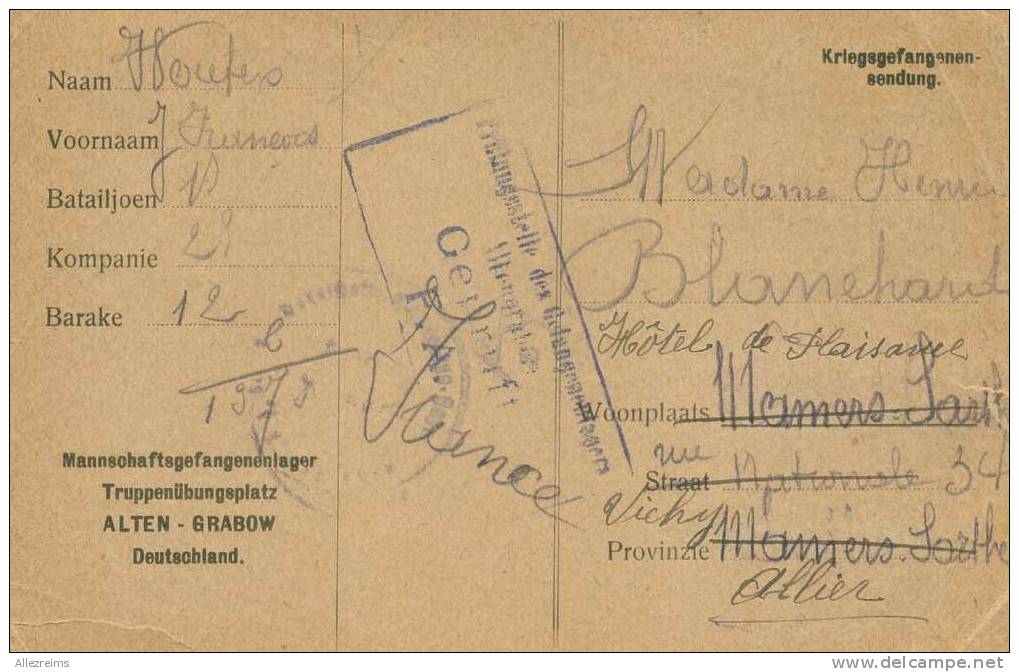 Naam
Voornaam
Batailjoen
Kompanie
Barake 12
Mannschaftsgefangenenlager
Truppenübungsplatz
ALTEN - GRABOW
Deutschland.
Prüfungsstelle des Gefangenenlagers
Altengrabow
Geprüft
F. A.
France
Kriegsgefangenen-
sendung.
Madame Henri
Blanchard
Hôtel de Plaisance
Woonplaats Mamers Sart
rue
Straat Nationale 34
Vichy
Provinzie Mamers Sarthe
Allier
Allezreims
www.delcampe.net